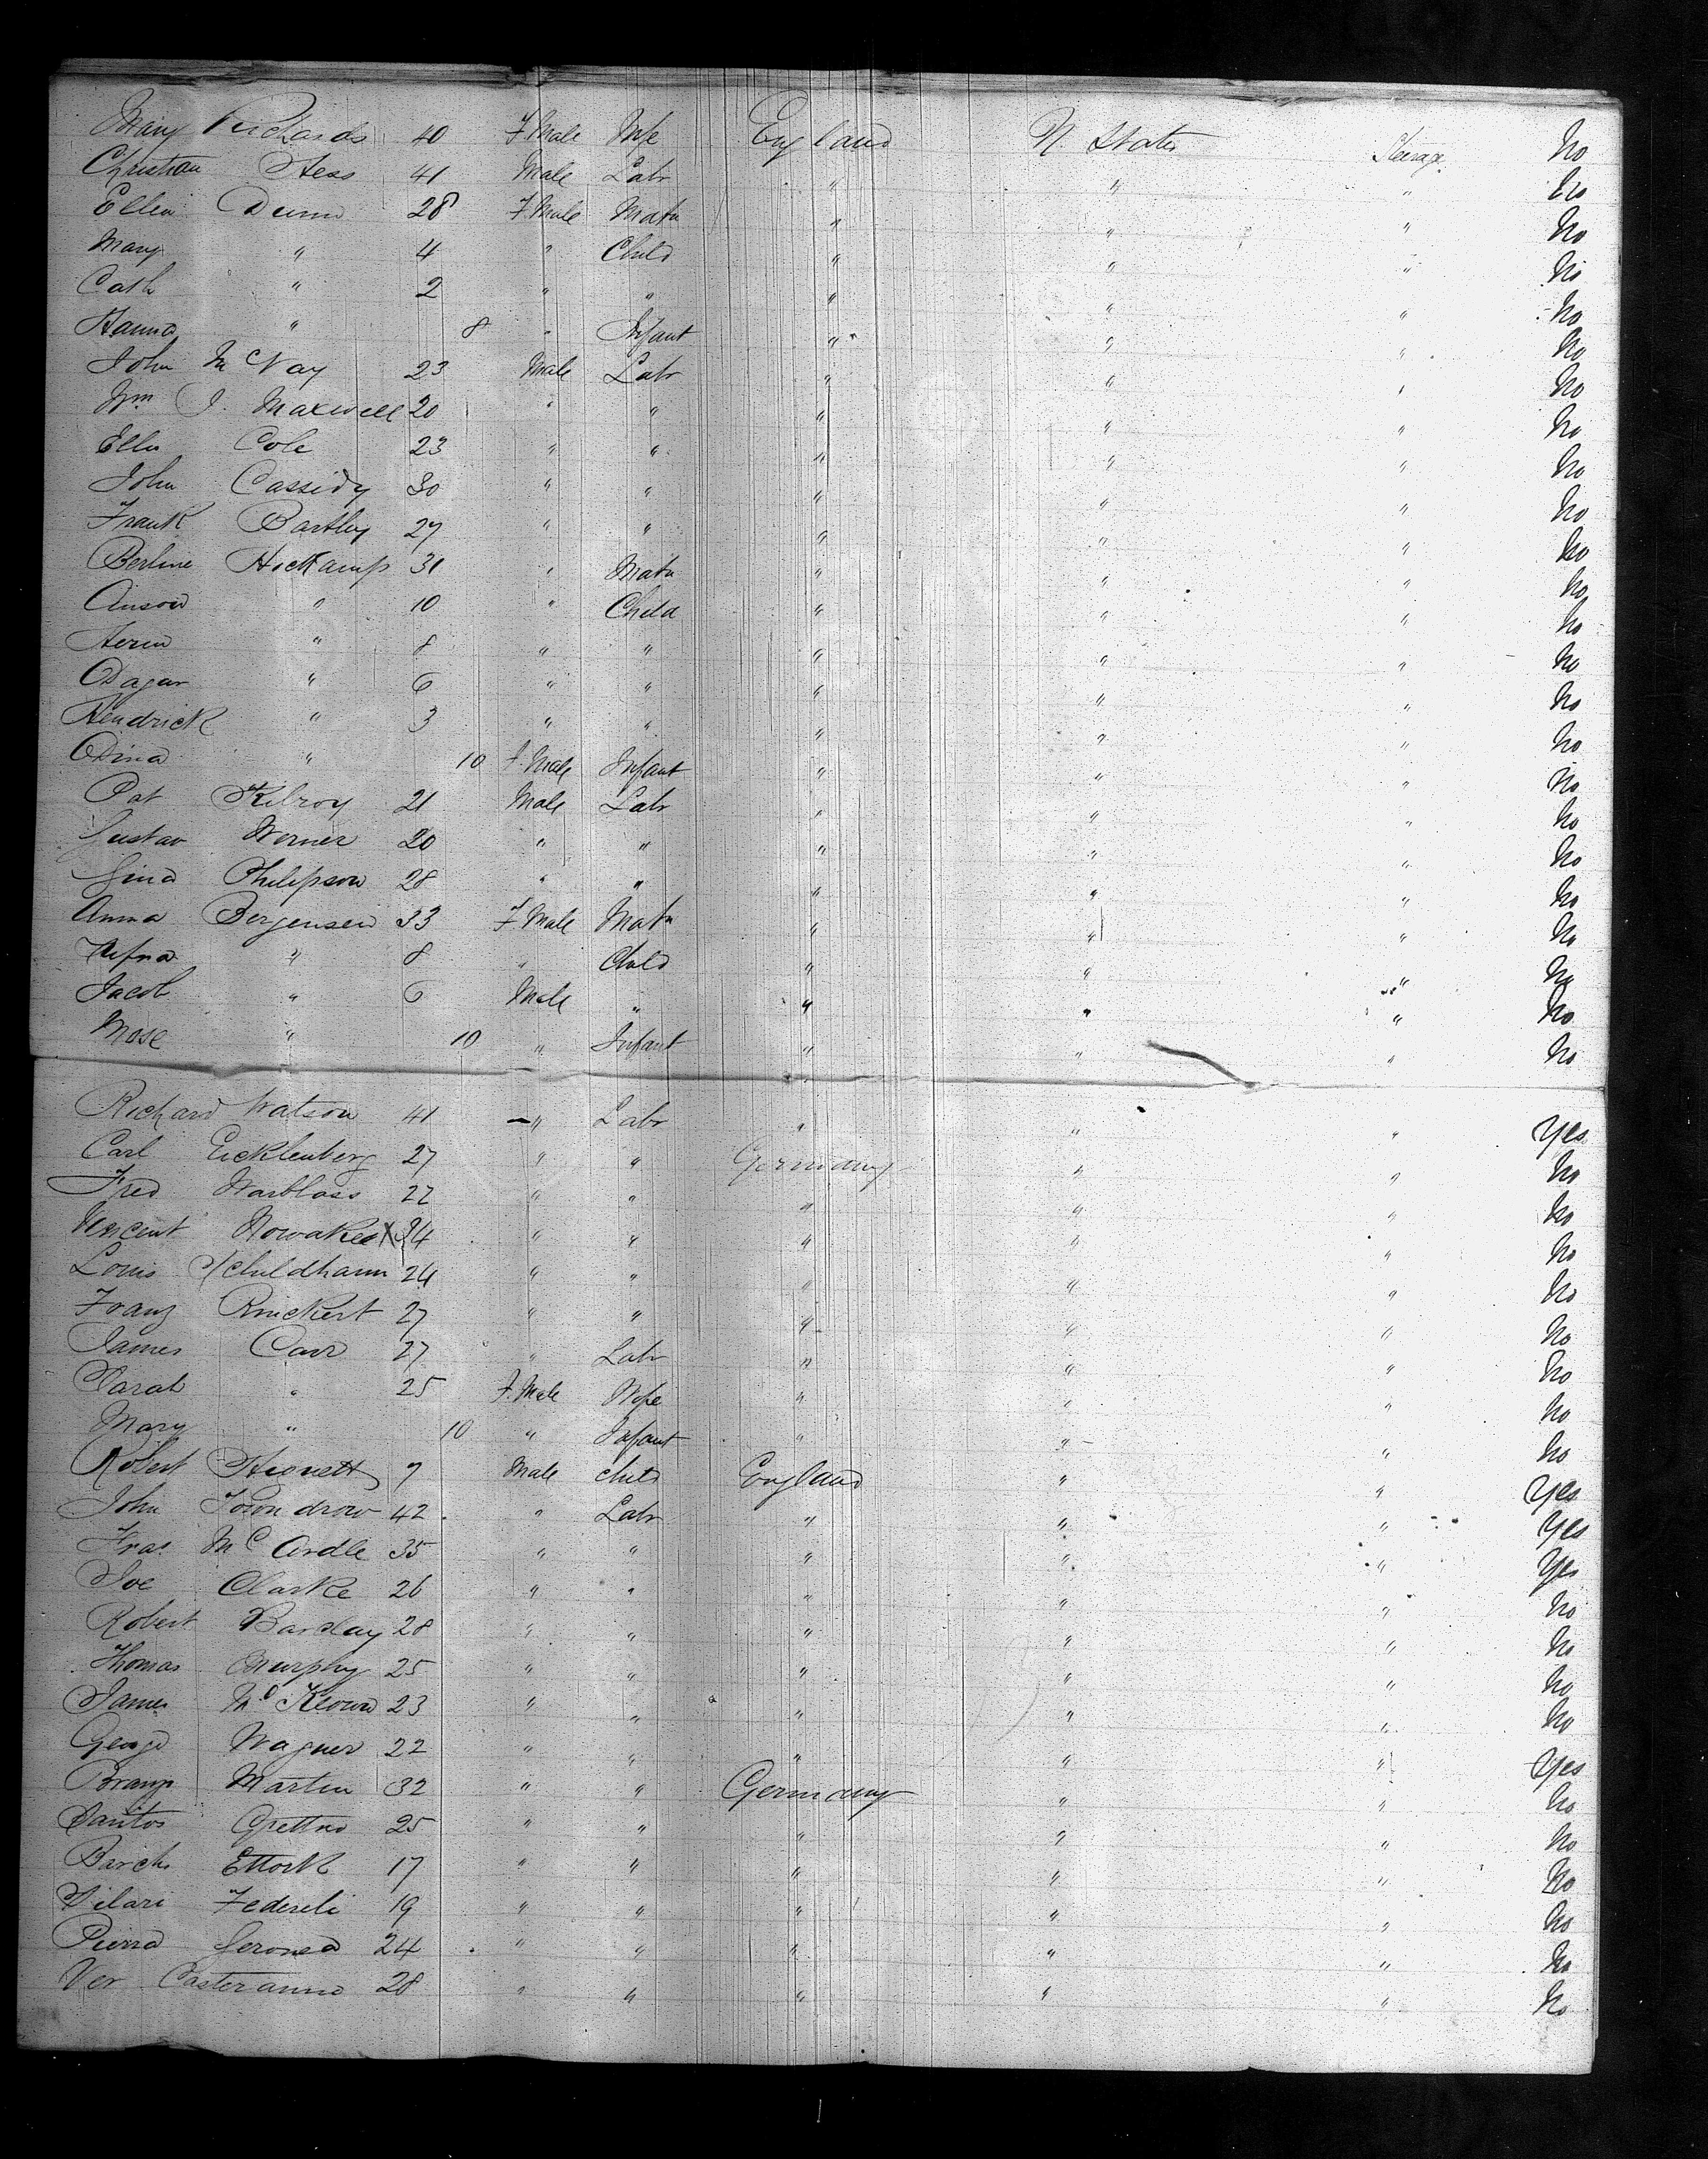 Mary Richards 40 F. Male Wife England U. States Steerage No
Christian Hess 41 Male Labr " " " No
Ellen Dunn 28 F. Male Matn " " " No
Mary " 4 " Child " " " No
Cath " 2 " " " " " No
Hanna " 8 " Infant " " " No
John McVay 23 Male Labr " " " No
Wm J. Maxwell 20 " " " " " No
Ellis Cole 23 " " " " " No
John Cassidy 30 " " " " " No
Frank Bartley 27 " " " " " No
Berline Hickamp 31 " Matn " " " No
10 " Child " " " No
" 8 " " " " " No
" 6 " " " " " No
Hendrick " 3 " " " " " No
" 10 F. Male Infant " " " No
Pat Kilroy 21 Male Labr " " " No
Gustav Werner 20 " " " " " No
Philipson 28 " " " " " No
Anna Bergensen 33 F. Male Matn " " " No
" 8 " Child " " " No
Jacob " 6 Male " " " " No
Mose " 10 " Infant " " " No
Richard Watson 41 " Labr " " " Yes
Carl Eicklenberg 27 " " Germany " " No
Fred 22 " " " " " No
Vincent 34 " " " " " No
Louis Schildhann 24 " " " " " No
Franz 27 " " " " " No
James Carr 27 " Labr " " " No
Sarah " 25 F. Male Wife " " " No
Mary " 10 " Infant " " " No
Robert 7 Male Child England " " Yes
John Towndrow 42 " Labr " " " Yes
Fras. McArdle 35 " " " " " Yes
Joe Clarke 26 " " " " " No
Robert Barclay 28 " " " " " No
Thomas Murphy 25 " " " " " No
James McKeown 23 " " " " " No
George Wagner 22 " " " " " Yes
Martin 32 " " Germany " " No
Santos 25 " " " " " No
17 " " " " " No
Federeli 19 " " " " " No
24 " " " " " No
Ver Casteranno 28 " " " " " No